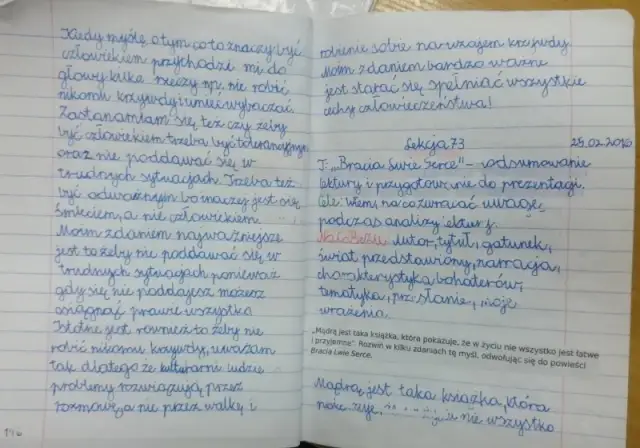 Kiedy myślę o tym co to znaczy być
człowiekiem przychodzi mi do
głowy kilka rzeczy np. nie robić
nikomu krzywdy i umieć wybaczać.
Zastanawiam się też czy żeby
być człowiekiem trzeba być tolerancyjnym
oraz nie poddawać się w
trudnych sytuacjach. Trzeba też
być odważnym bo inaczej jest się
śmieciem, a nie człowiekiem.
Moim zdaniem najważniejsze
jest to żeby nie poddawać się w
trudnych sytuacjach ponieważ
gdy się nie poddajesz możesz
osiągnąć prawie wszystko.
Istotne jest również to żeby nie
robić nikomu krzywdy, uważam
tak dlatego że kulturarni ludzie
problemy rozwiązują przez
rozmowę, a nie przez walkę i
robienie sobie na wzajem krzywdy.
Moim zdaniem bardzo ważne
jest starać się spełniać wszystkie
cechy człowieczeństwa!
Lekcja 73
T: „Bracia Lwie Serce" – podsumowanie
lektury i przygotowanie do prezentacji.
Cele: Wiem, na co zwracać uwagę,
podczas analizy lektury.
NaCoBeZu: Autor, tytuł, gatunek,
świat przedstawiony, narracja,
charakterystyka bohaterów,
tematyka, przesłanie, moje
wrażenia.
„Mądrą jest taka książka, która pokazuje, że w życiu nie wszystko jest łatwe
i przyjemne". Rozwiń w kilku zdaniach tę myśl, odwołując się do powieści
Bracia Lwie Serce.
Mądrą jest taka książka, która
nie wszystko
146